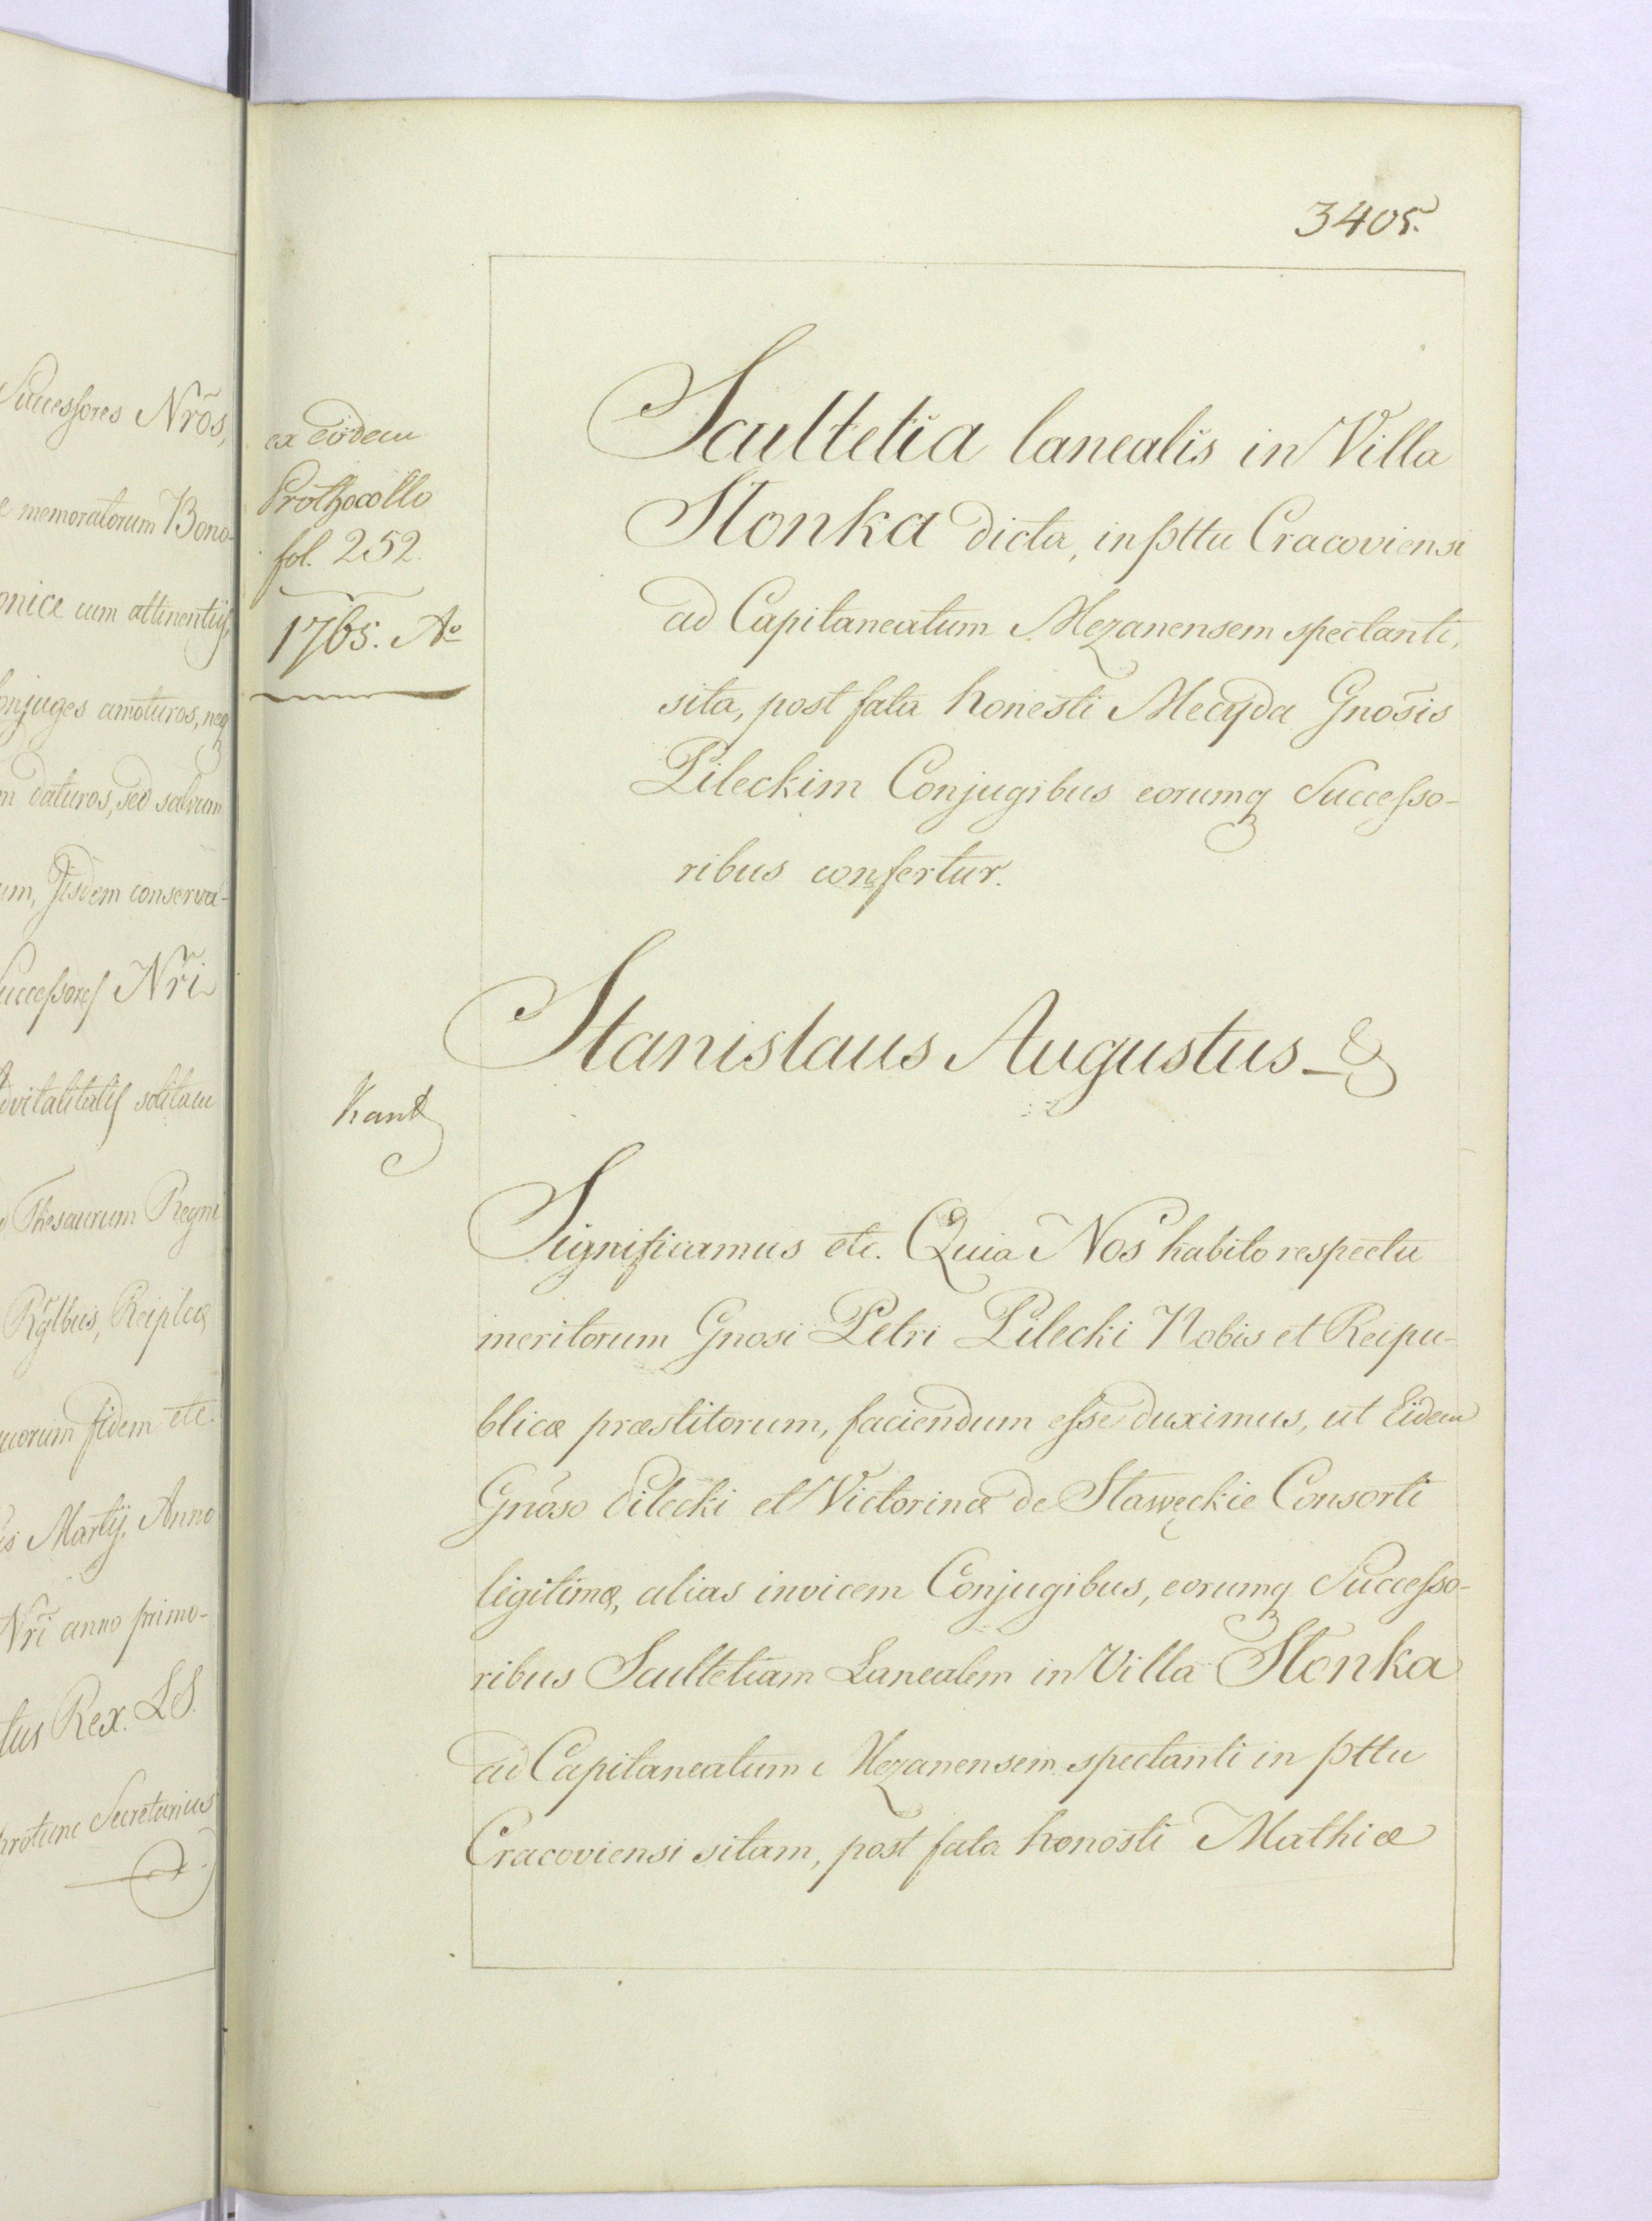 Successores Nrõs,
e memoratorum Bono-
onice cum attinentijs,
onjuges amoturos, neq
m daturos, sed salvum
um, Jisdem conserva-
uccessores Nri
dvitalitatis solitam
Thesaurum Regni
Rglbus, Reiplcæ
uorum fidem etc.
is Martij, Anno
Nri anno primo-
tus Rex. LS.
protunc Secretarius
3405.
ex eodem
Prothocollo
fol. 252.
1765. Aº
Scultetia lanealis in Villa
Slonka dicta, in pttu Cracoviensi
ad Capitaneatum Mezanensem spectanti,
sita, post fata honesti Mecyda Gnosis
Pileckim Conjugibus eorumq Successo-
ribus confertur.
Stanislaus Augustus &
Kant
Significamus etc. Quia Nos habito respectu
meritorum Gnosi Petri Pilecki Nobis et Reipu-
blicæ præstitorum, faciendum esse duximus, ut Eidem
Gnoso Pilecki et Victorinæ de Stawęckie Consorti
legitimæ, alias invicem Conjugibus, eorumq Successo-
ribus Scultetiam Lanealem in Villa Slonka
ad Capitaneatum Mezanensem spectanti in pttu
Cracoviensi sitam, post fata honosti Mathiæ